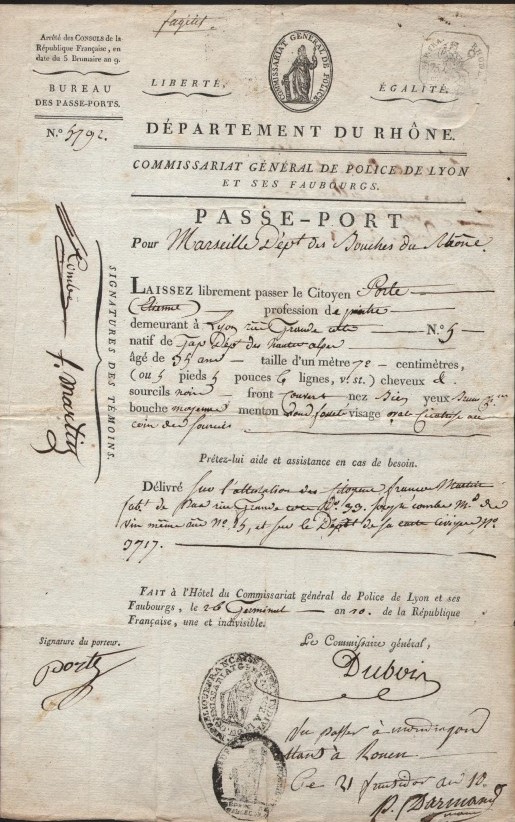 Arrêté des CONSULS de la
République Française, en
date du 5 Brumaire an 9.
BUREAU
DES PASSE-PORTS.
N.º 5792.
COMMISSARIAT GÉNÉRAL DE POLICE
LIBERTÉ,
ÉGALITÉ.
DÉPARTEMENT DU RHÔNE.
COMMISSARIAT GÉNÉRAL DE POLICE DE LYON
ET SES FAUBOURGS.
PASSE-PORT
Pour Marseille Dépt des Bouches du Rhône.
LAISSEZ librement passer le Citoyen Porte
(Etienne) profession de
demeurant à Lyon rue Grande cote N.º 5
natif de Gap Dépt des hautes alpes
âgé de 35 ans taille d'un mètre 72 centimètres,
(ou 5 pieds 3 pouces 6 lignes, v.e st.) cheveux &
sourcils noirs front Couvert nez Bien yeux
bouche moyenne menton rond visage oval Cicatrice au
coin des sourcils
Prêtez-lui aide et assistance en cas de besoin.
Délivré Sur l'attestation des Citoyens françois Martin
fabt. de Bas rue Grande cote Nº. 33. joseph combe Md. de
vin même rue Nº. 5, et sur le Dépôt de sa carte civique Nº.
9717.
FAIT à l'Hôtel du Commissariat général de Police de Lyon et ses
Faubourgs, le 26 Germinal an 10. de la République
Française, une et indivisible.
SIGNATURES DES TÉMOINS.
Combe
f. Martin
Signature du porteur.
porte
Le Commissaire général,
Dubois
Vu passer à
allant à Rouen
Ce 21 fructidor an 10.
P. Darmand